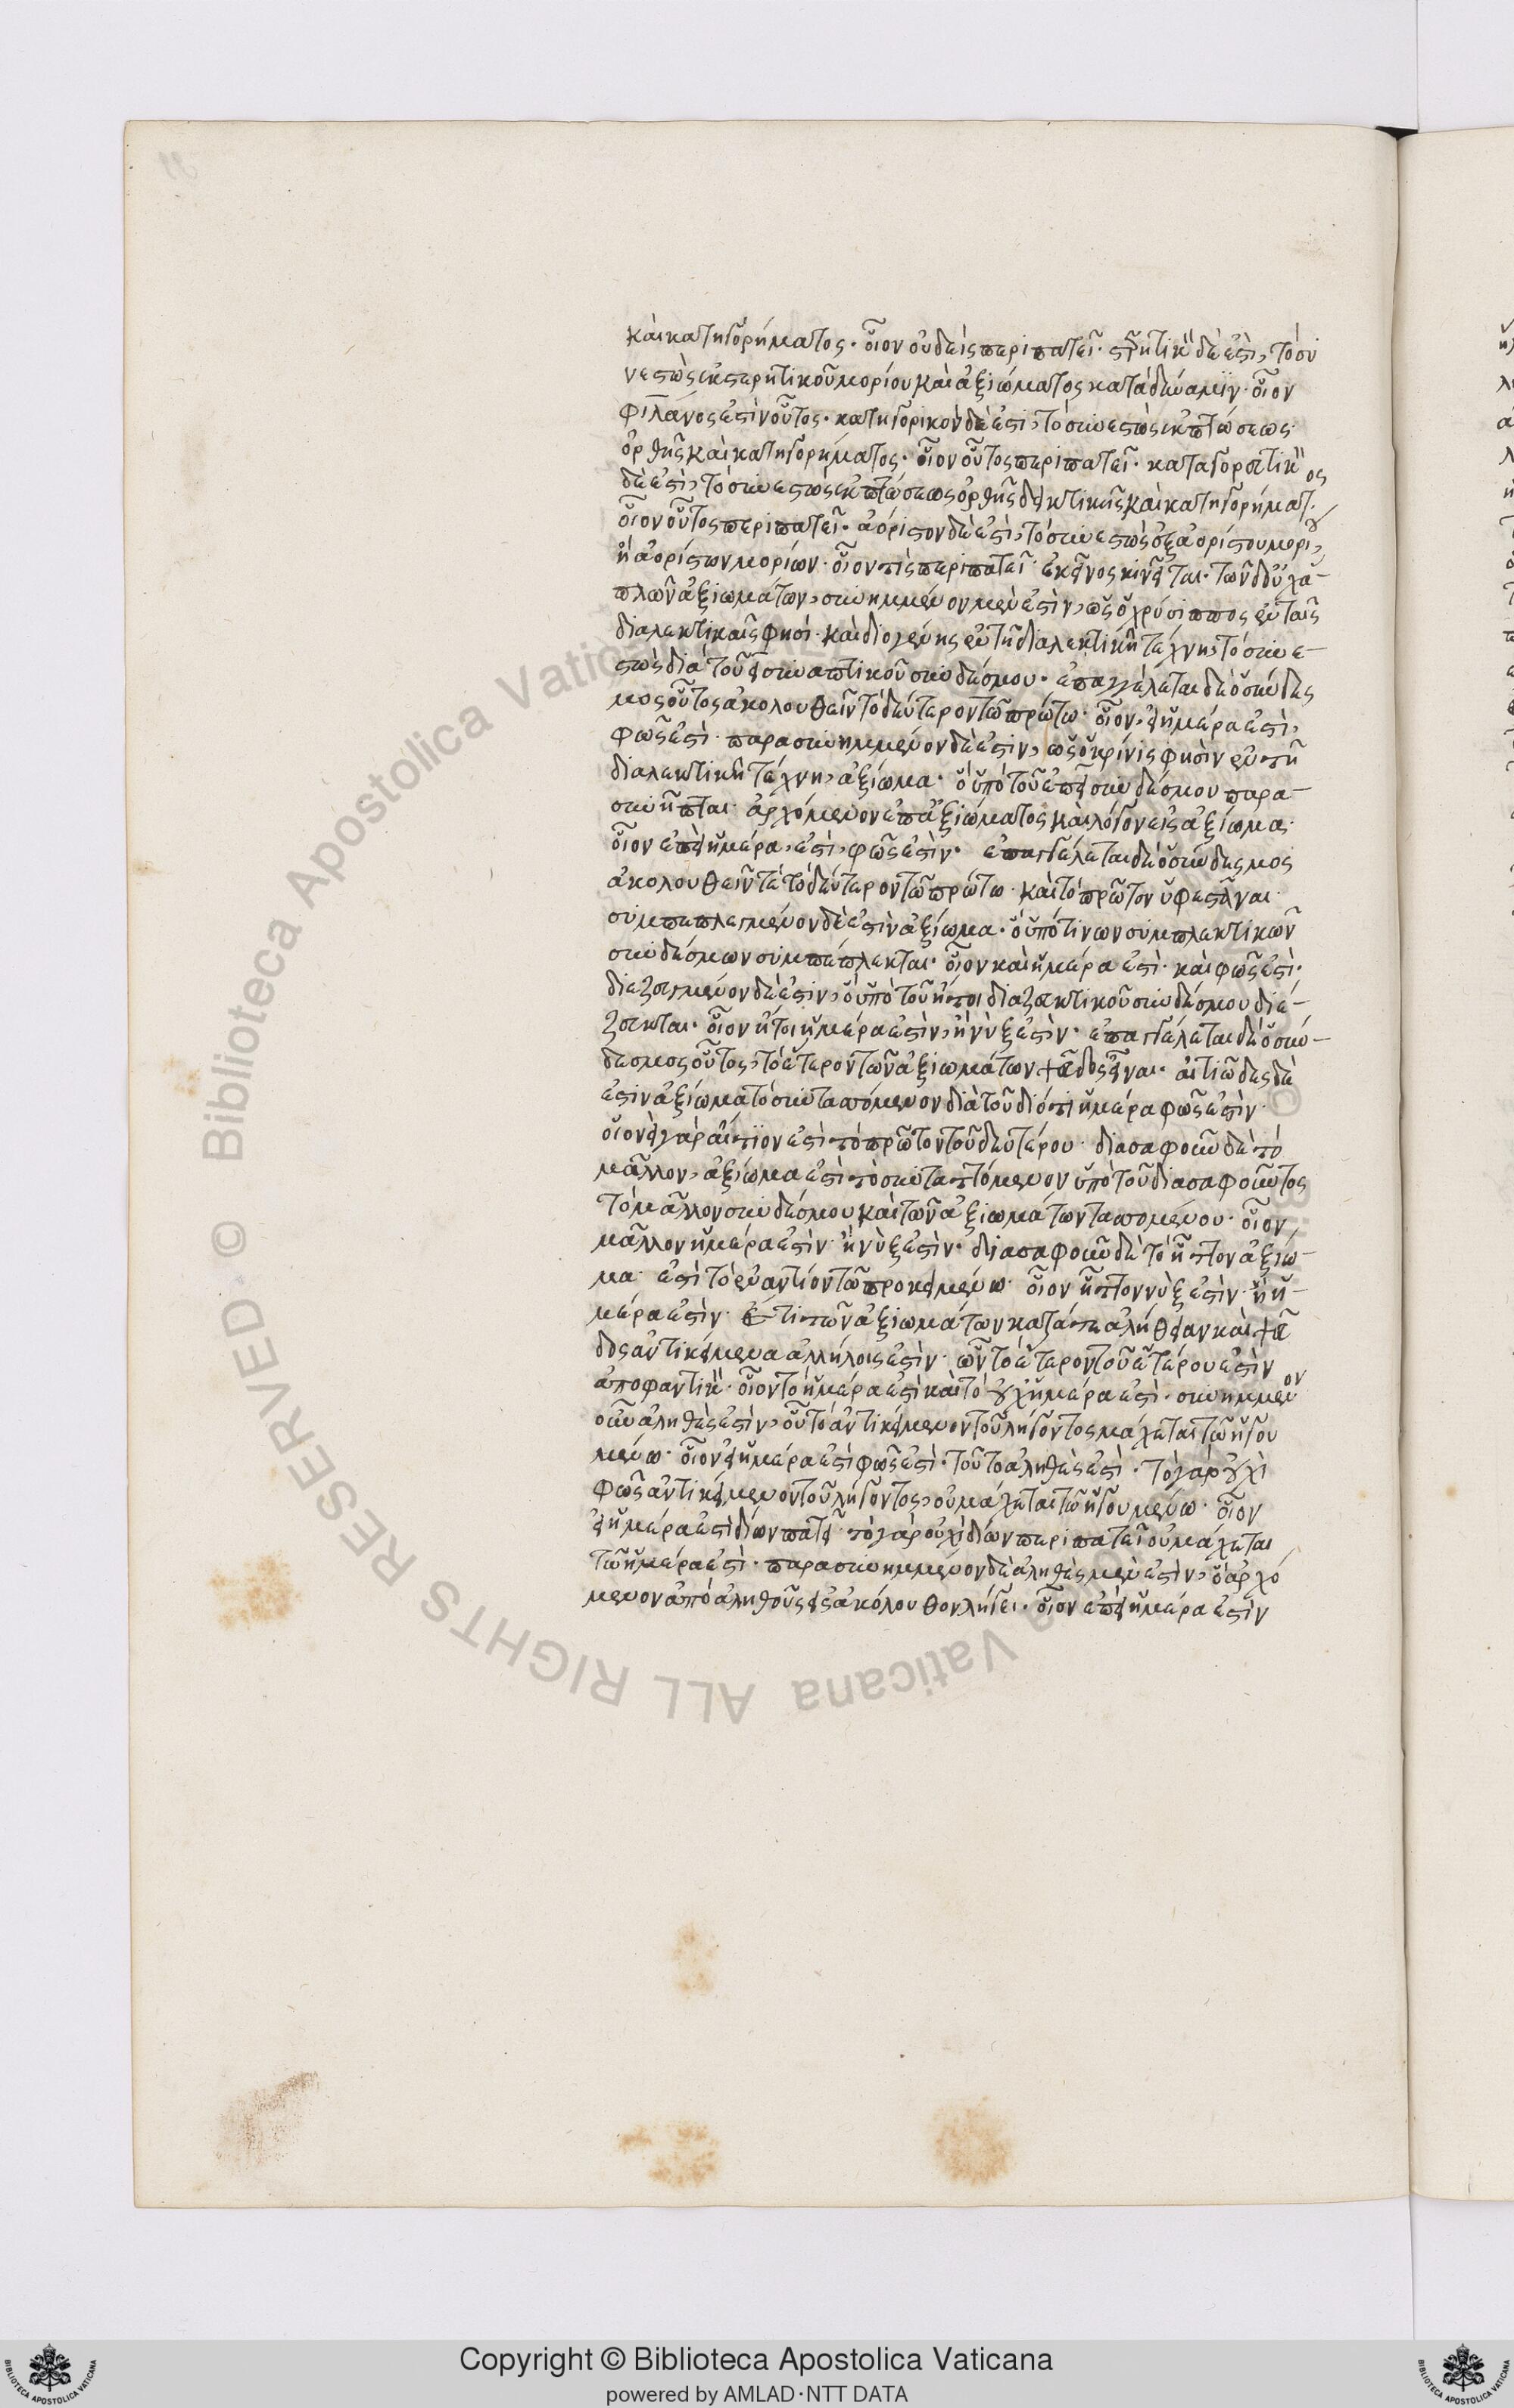 καὶ κατηγορήματος· οἷον οὐδεὶς περιπατεῖ· στερητικὸν δέ ἐστι, τὸ συ
νεστὼς ἐκ στερητικοῦ μορίου καὶ ἀξιώματος κατὰ δύναμιν· οἷον
φιλάνος ἐστὶν οὗτος· κατηγορικὸν δέ ἐστι, τὸ συνεστὼς ἐκ πτώσεως
ὀρθῆς καὶ κατηγορήματος· οἷον οὗτος περιπατεῖ· καταγορευτικὸν
δέ ἐστι, τὸ συνεστὼς ἐκ πτώσεως ὀρθῆς δεικτικῆς καὶ κατηγορήματος·
οἷον οὗτος περιπατεῖ· ἀόριστον δέ ἐστι, τὸ συνεστὼς ἐξ ἀορίστου μορίου,
ἢ ἀορίστων μορίων· οἷον τὶς περιπατεῖ· ἐκεῖνος κινεῖται· τῶν δ' οὐχ ἁ-
πλῶν ἀξιωμάτων, συνημμένον μέν ἐστιν, ὡς ὁ χρύσιππος ἐν ταῖς
διαλεκτικαῖς φησί· καὶ διογένης ἐν τῇ διαλεκτικῇ τέχνῃ, τὸ συνε-
στὼς διὰ τοῦ εἰ συναπτικοῦ συνδέσμου· ἐπαγγέλεται δὲ ὁ σύνδες
μος οὗτος ἀκολουθεῖν τὸ δεύτερον τῷ πρώτω· οἷον, εἰ ἡμέρα ἐστὶ,
φῶς ἐστί· παρασυνημμένον δέ ἐστιν, ὡς ὁ κρίνις φησὶν ἐν τῇ
διαλεκτικῇ τέχνῃ, ἀξίωμα· ὃ ὑπὸ τοῦ ἐπεὶ συνδέσμου παρα-
συνῆπται· ἀρχόμενον ἐπ' ἀξιώματος καὶ λῆγον εἰς ἀξίωμα·
οἷον ἐπεὶ ἡμέρα, ἐστὶ, φῶς ἐστίν· ἐπαγγέλεται δὲ ὁ σύνδεσμος
ἀκολουθεῖν τε τὸ δεύτερον τῷ πρώτω· καὶ τὸ πρῶτον ὑφεστάναι·
συμπεπλεγμένον δέ ἐστιν ἀξίωμα· ὃ ὑπό τινων συμπλεκτικῶν
συνδέσμων συμπέπλεκται· οἷον καὶ ἡμέρα ἐστὶ· καὶ φῶς ἐστί·
διεζευγμένον δέ ἐστιν, ὃ ὑπὸ τοῦ ἤτοι διαζευκτικοῦ συνδέσμου διέ-
ζευκται· οἷον ἤτοι ἡμέρα ἐστὶν, ἢ νὺξ ἐστίν· ἐπαγγέλεται δὲ ὁ σύν-
δεσμος οὗτος, τὸ ἕτερον τῶν ἀξιωμάτων ψεῦδος εἶναι· αἰτιῶδες δέ
ἐστιν ἀξίωμα τὸ συντασσόμενον διὰ τοῦ διότι ἡμέρα φῶς ἐστίν·
οἱονεὶ γὰρ αἴτιον ἐστὶ τὸ πρῶτον τοῦ δευτέρου· διασαφοῦν δὲ τὸ
μᾶλλον, ἀξίωμα ἐστὶ τὸ συνταττόμενον ὑπὸ τοῦ διασαφοῦντος
τὸ μᾶλλον συνδέσμου καὶ τῶν ἀξιωμάτων τασσομένου· οἷον,
μᾶλλον ἡμέρα ἐστὶν· ἢ νὺξ ἐστίν· διασαφοῦν δὲ τὸ ἧττον ἀξίω-
μα· ἐστὶ τὸ ἐναντίον τῷ προκειμένω· οἷον ἧττον νὺξ ἐστὶν· ἢ ἡ-
μέρα ἐστίν· ἔτι τῶν ἀξιωμάτων κατά τε ἀλήθειαν καὶ ψεῦ
δος ἀντικείμενα ἀλλήλοις ἐστίν· ὧν τὸ ἕτερον τοῦ ἑτέρου ἐστὶν
ἀποφαντικόν· οἷον τὸ ἡμέρα ἐστὶ καὶ τὸ οὐχ ἡμέρα ἐστί· συνημμένον
οὖν ἀληθές ἐστιν, οὗ τὸ ἀντικείμενον τοῦ λήγοντος μάχεται τῷ ἡγου
μένω· οἷον εἰ ἡμέρα ἐστὶ φῶς ἐστί· τοῦτο ἀληθές ἐστί· τὸ γὰρ οὐχὶ
φῶς ἀντικείμενον τοῦ λήγοντος, οὐ μάχεται τῷ ἡγουμένω· οἷον
εἰ ἡμέρα ἐστὶ δίων πατεῖ· τὸ γὰρ οὐχὶ δίων περιπατεῖ οὐ μάχεται
τῷ ἡμέρα ἐστί· παρασυνημμένον δὲ ἀληθὲς μέν ἐστιν, ὃ ἀρχό
μενον ἀπὸ ἀληθοῦς εἰς ἀκόλουθον λήγει· οἷον ἐπεὶ ἡμέρα ἐστὶν